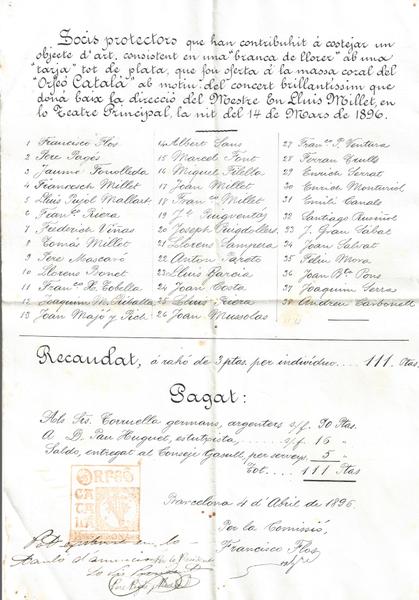 Socis protectors que han contribuhit á costejar un
objecte d'art, consistent en una "branca de llorer" ab una
"tarja" tot de plata, que fou oferta á la massa coral del
"Orfeó Catalá" ab motiu del concert brillantíssim que
doná baix la direcció del Mestre En Lluís Millet, en
lo Teatre Principal, la nit del 14 de Mars de 1896.
1 Francisco Flos
2 Pere Pagés
3 Jaume Fonolleda
4 Francesch Millet
5 Lluís Pujol Mallart
6 Fran.co Riera
7 Frederich Viñas
8 Tomás Millet
9 Pere Mascaró
10 Llorens Bonet
11 Fran.co X. Tobella
12 Joaquim M. Ribalta
13 Joan Majó y Rich
14 Albert Sans
15 Marcel Font
16 Miquel Filella
17 Joan Millet
18 Fran.co Millet
19 J. Puigventós
20 Joseph Puigdollers
21 Llorens Sampera
22 Anton Pareto
23 Lluís García
24 Joan Costa
25 Lluís Riera
26 Joan Mussolas
27 Fran.co P. Ventura
28 Ferran Trulls
29 Enrich Serrat
30 Enrich Monturiol
31 Emili Canals
32 Santiago Rusiñol
33 J. Gran Sabat
34 Joan Salvat
35 Feliu Mora
36 Joan B.ta Pons
37 Joaquim Serra
38 Andreu Carbonell
Recaudat, á rahó de 3 ptas. per individuo.... 111 Ptas.
Pagat:
Als Srs. Torruella germans, argenters s/f. 90 Ptas.
A D. Pau Huguet, estutxista, s/f. 16 "
Saldo, entregat al Conseje Gasull, per serveys, 5 "
Tot... 111 Ptas
Barcelona 4 d'Abril de 1896.
Per la Comissió,
Francisco Flos
ORFEÓ
CATALÁ